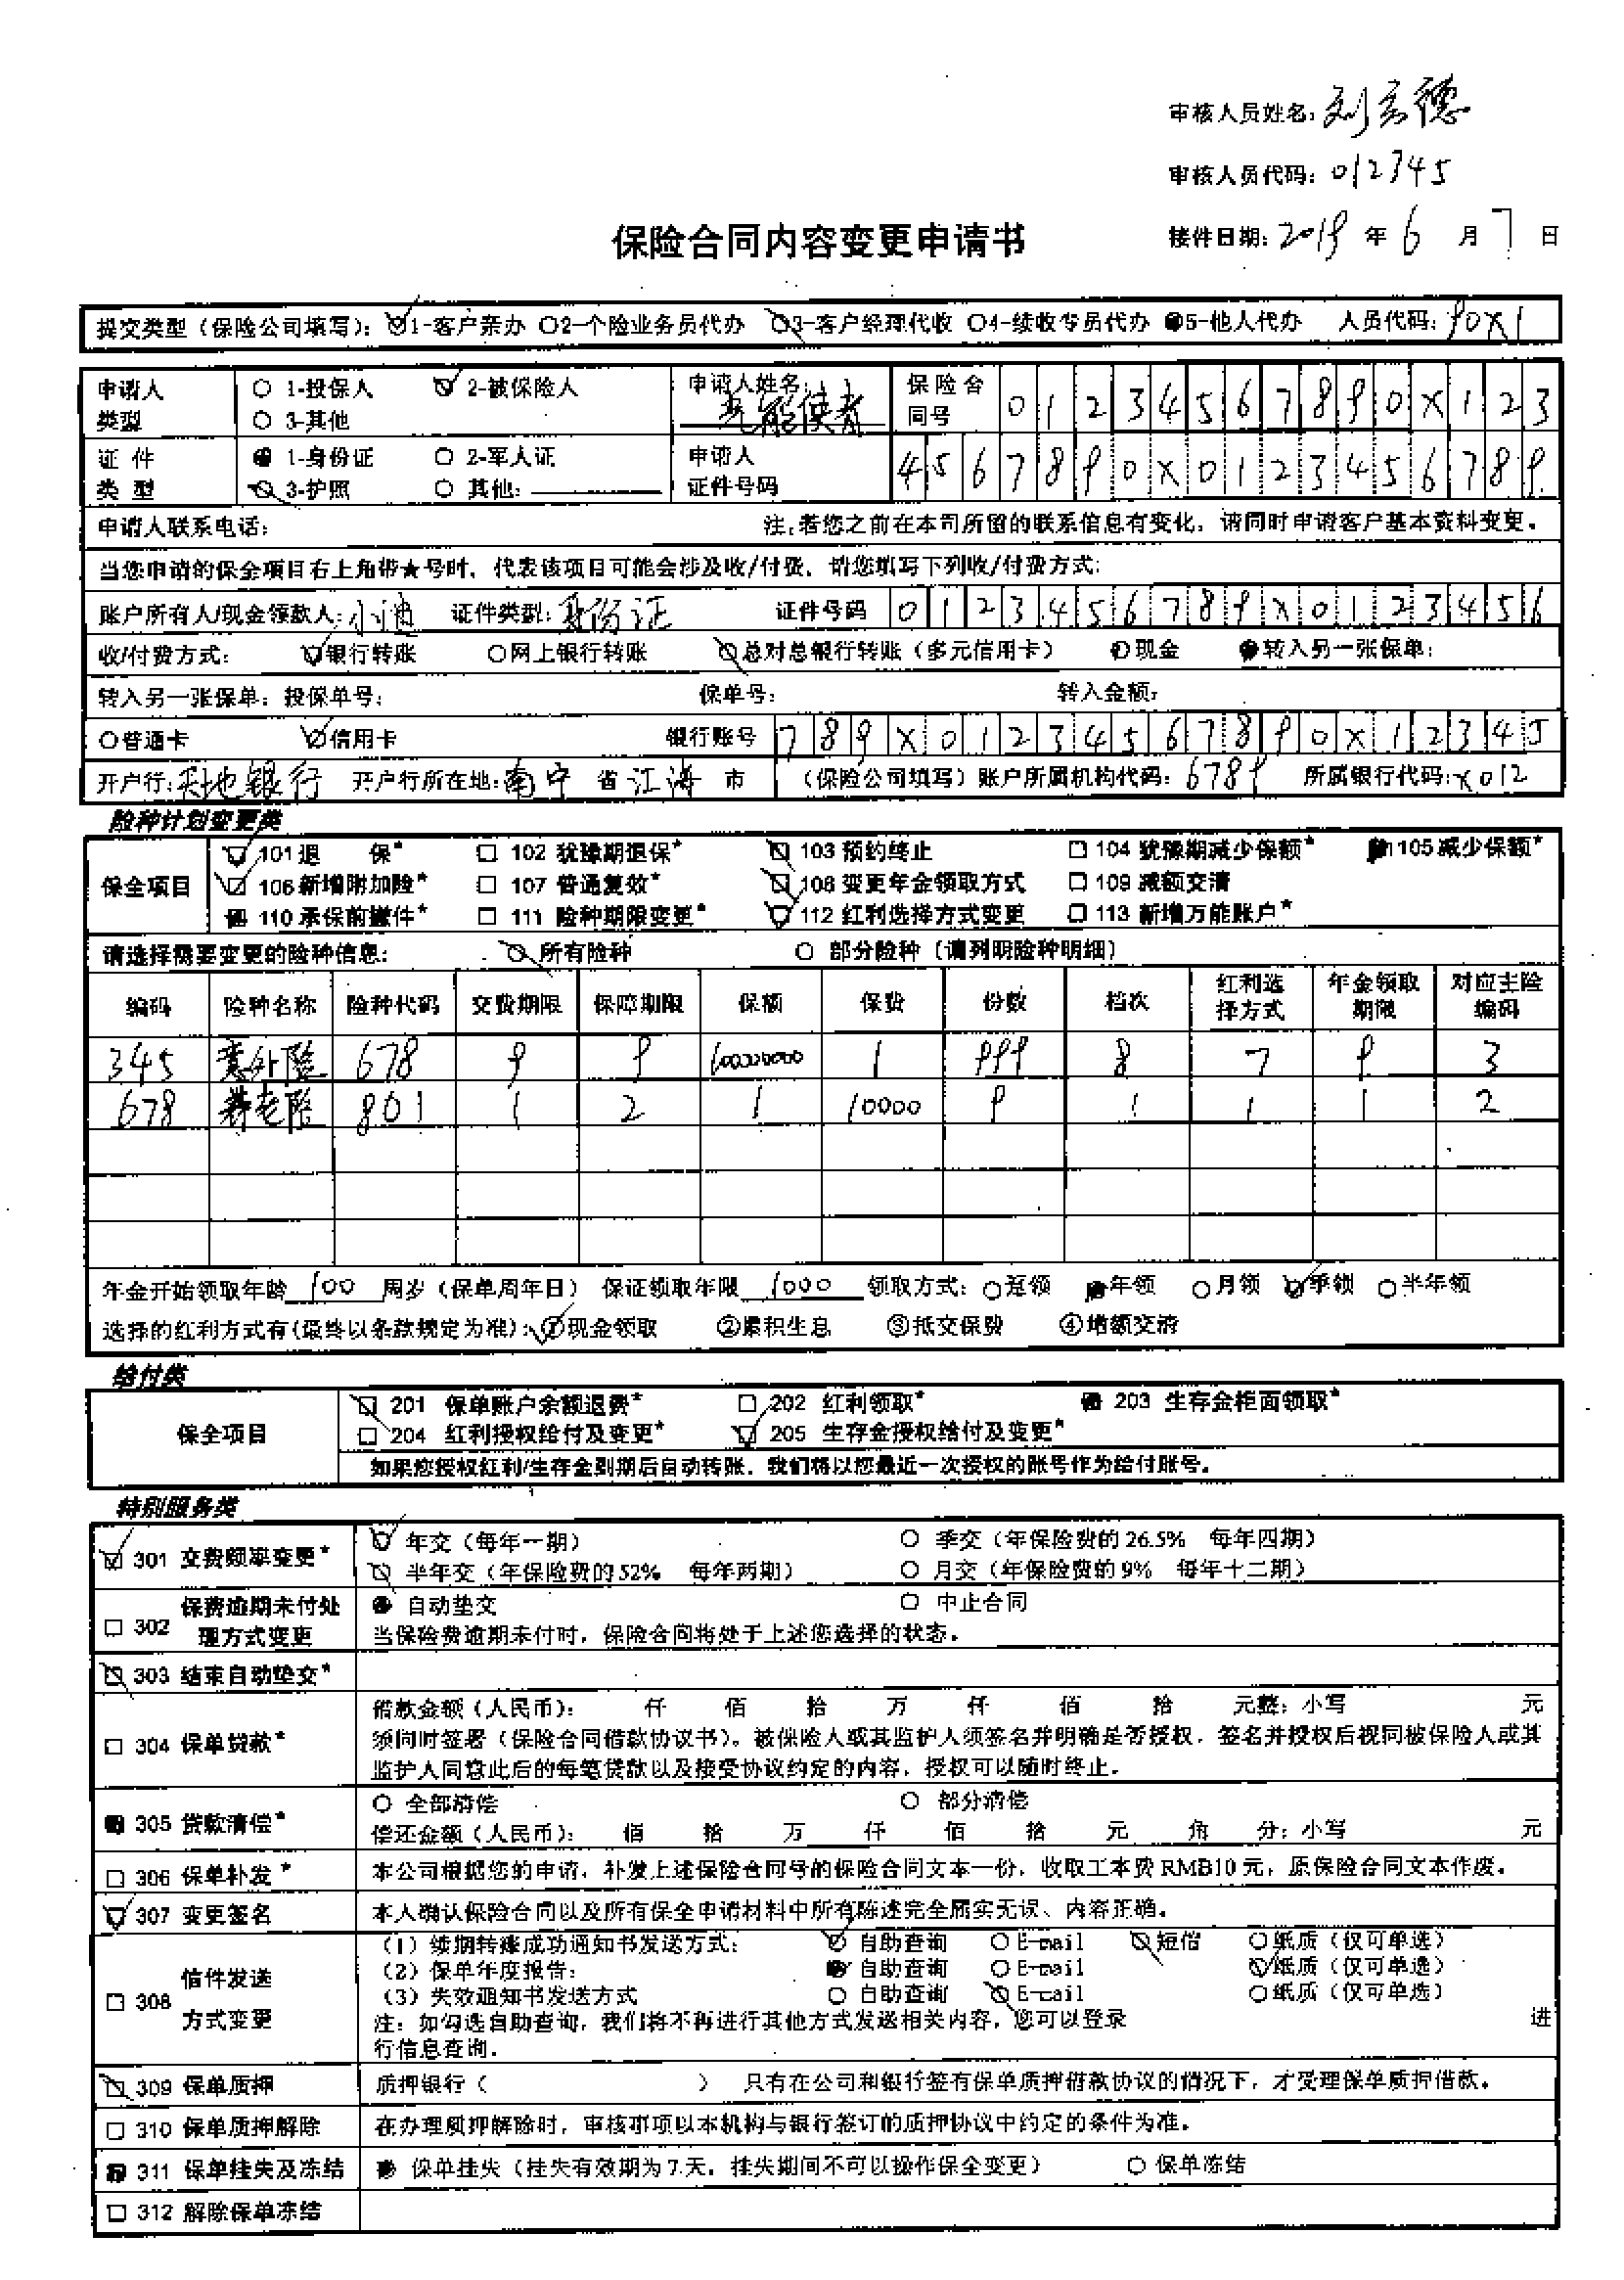 审核人员姓名：刘玄德
审核人员代码：012345
保险合同内容变更申请书
接件日期：2019年6月7日
提交类型（保险公司填写）：○1-客户亲办 ○2-个险业务员代办 ○3-客户经理代收 ○4-续收专员代办 ●5-他人代办 人员代码：90X1
申请人类型 ○ 1-投保人 ○ 2-被保险人 ○ 3-其他 申请人姓名：光能使者 保险合同号 01234567890X123
证件类型 ● 1-身份证 ○ 2-军人证 ○ 3-护照 ○ 其他： 申请人证件号码 4567890X0123456789
申请人联系电话： 注：若您之前在本司所留的联系信息有变化，请同时申请客户基本资料变更。
当您申请的保全项目右上角带★号时，代表该项目可能会涉及收/付费，请您填写下列收/付费方式：
账户所有人/现金领款人：小迪 证件类型：身份证 证件号码 0123456789X0123456
收/付费方式： ○银行转账 ○网上银行转账 ○总对总银行转账（多元信用卡） ○现金 ●转入另一张保单：
转入另一张保单：投保单号： 保单号： 转入金额：
○普通卡 ○信用卡 银行账号 789X01234567890X12345
开户行：天地银行 开户行所在地：南宁 省 江海 市 （保险公司填写）账户所属机构代码：6789 所属银行代码：X012
险种计划变更类
保全项目 □ 101 退 保* □ 102 犹豫期退保* □ 103 预约终止 □ 104 犹豫期减少保额* ■ 105 减少保额*
□ 106 新增附加险* □ 107 普通复效* □ 108 变更年金领取方式 □ 109 减额交清
■ 110 承保前撤件* □ 111 险种期限变更* □ 112 红利选择方式变更 □ 113 新增万能账户*
请选择需要变更的险种信息： ○ 所有险种 ○ 部分险种（请列明险种明细）
编码 险种名称 险种代码 交费期限 保障期限 保额 保费 份数 档次 红利选择方式 年金领取期限 对应主险编码
345 意外险 678 9 9 100000000 1 999 8 7 9 3
678 养老险 801 1 2 1 10000 9 1 1 1 2
年金开始领取年龄 100 周岁（保单周年日） 保证领取年限 1000 领取方式：○趸领 ●年领 ○月领 ○季领 ○半年领
选择的红利方式有(最终以条款规定为准)：①现金领取 ②累积生息 ③抵交保费 ④增额交清
给付类
保全项目 □ 201 保单账户余额退费* □ 202 红利领取* ■ 203 生存金柜面领取*
□ 204 红利授权给付及变更* □ 205 生存金授权给付及变更*
如果您授权红利/生存金到期后自动转账，我们将以您最近一次授权的账号作为给付账号。
特别服务类
□ 301 交费频率变更* ○ 年交（每年一期） ○ 季交（年保险费的 26.5% 每年四期）
○ 半年交（年保险费的 52% 每年两期） ○ 月交（年保险费的 9% 每年十二期）
□ 302 保费逾期未付处理方式变更 ● 自动垫交 ○ 中止合同
当保险费逾期未付时，保险合同将处于上述您选择的状态。
□ 303 结束自动垫交*
□ 304 保单贷款* 借款金额（人民币）： 仟 佰 拾 万 仟 佰 拾 元整；小写 元
须同时签署（保险合同借款协议书）。被保险人或其监护人须签名并明确是否授权，签名并授权后视同被保险人或其
监护人同意此后的每笔贷款以及接受协议约定的内容，授权可以随时终止。
■ 305 贷款清偿* ○ 全部清偿 ○ 部分清偿
偿还金额（人民币）： 佰 拾 万 仟 佰 拾 元 角 分；小写 元
□ 306 保单补发* 本公司根据您的申请，补发上述保险合同号的保险合同文本一份，收取工本费 RMB10 元；原保险合同文本作废。
□ 307 变更签名 本人确认保险合同以及所有保全申请材料中所有陈述完全属实无误、内容正确。
□ 308 信件发送方式变更 （1）续期转账成功通知书发送方式： ○ 自助查询 ○ E-mail ○ 短信 ○ 纸质（仅可单选）
（2）保单年度报告： ● 自助查询 ○ E-mail ○ 纸质（仅可单选）
（3）失效通知书发送方式 ○ 自助查询 ○ E-mail ○ 纸质（仅可单选）
注：如勾选自助查询，我们将不再进行其他方式发送相关内容，您可以登录 进
行信息查询。
□ 309 保单质押 质押银行（ ） 只有在公司和银行签有保单质押借款协议的情况下，才受理保单质押借款。
□ 310 保单质押解除 在办理质押解除时，审核事项以本机构与银行签订的质押协议中约定的条件为准。
■ 311 保单挂失及冻结 ● 保单挂失（挂失有效期为 7 天，挂失期间不可以操作保全变更） ○ 保单冻结
□ 312 解除保单冻结